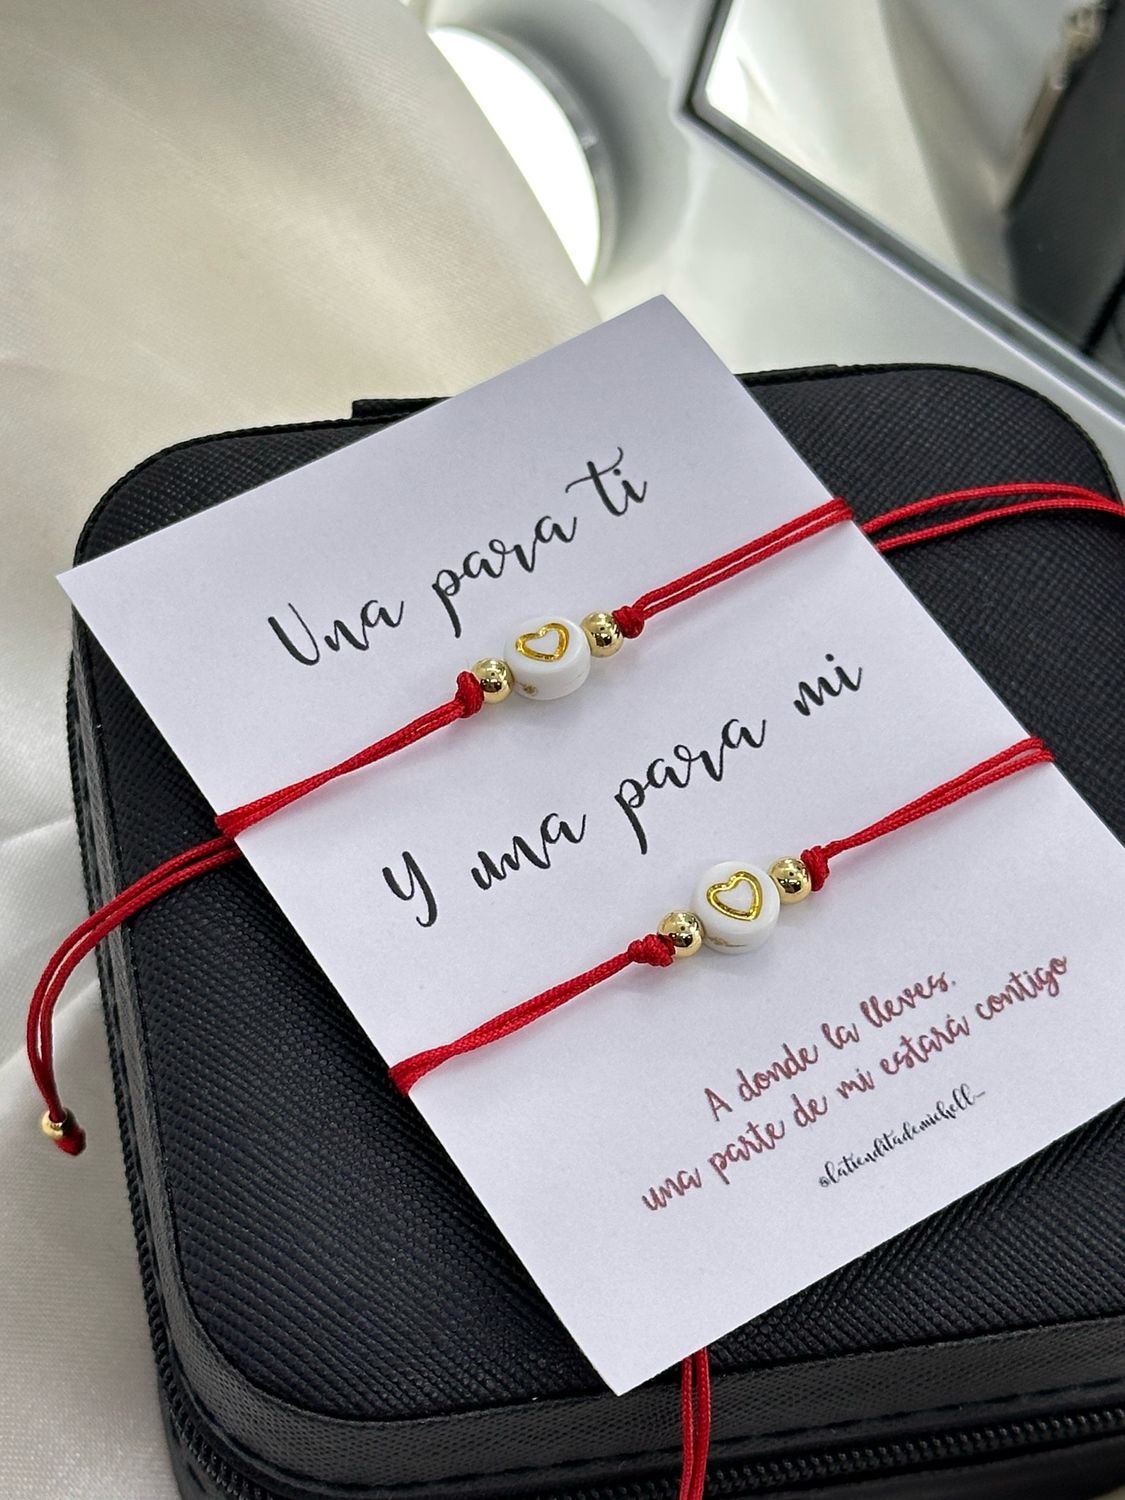 Una para ti
Y una para mi
A donde la lleves,
una parte de mi estará contigo
@latienditademichell_